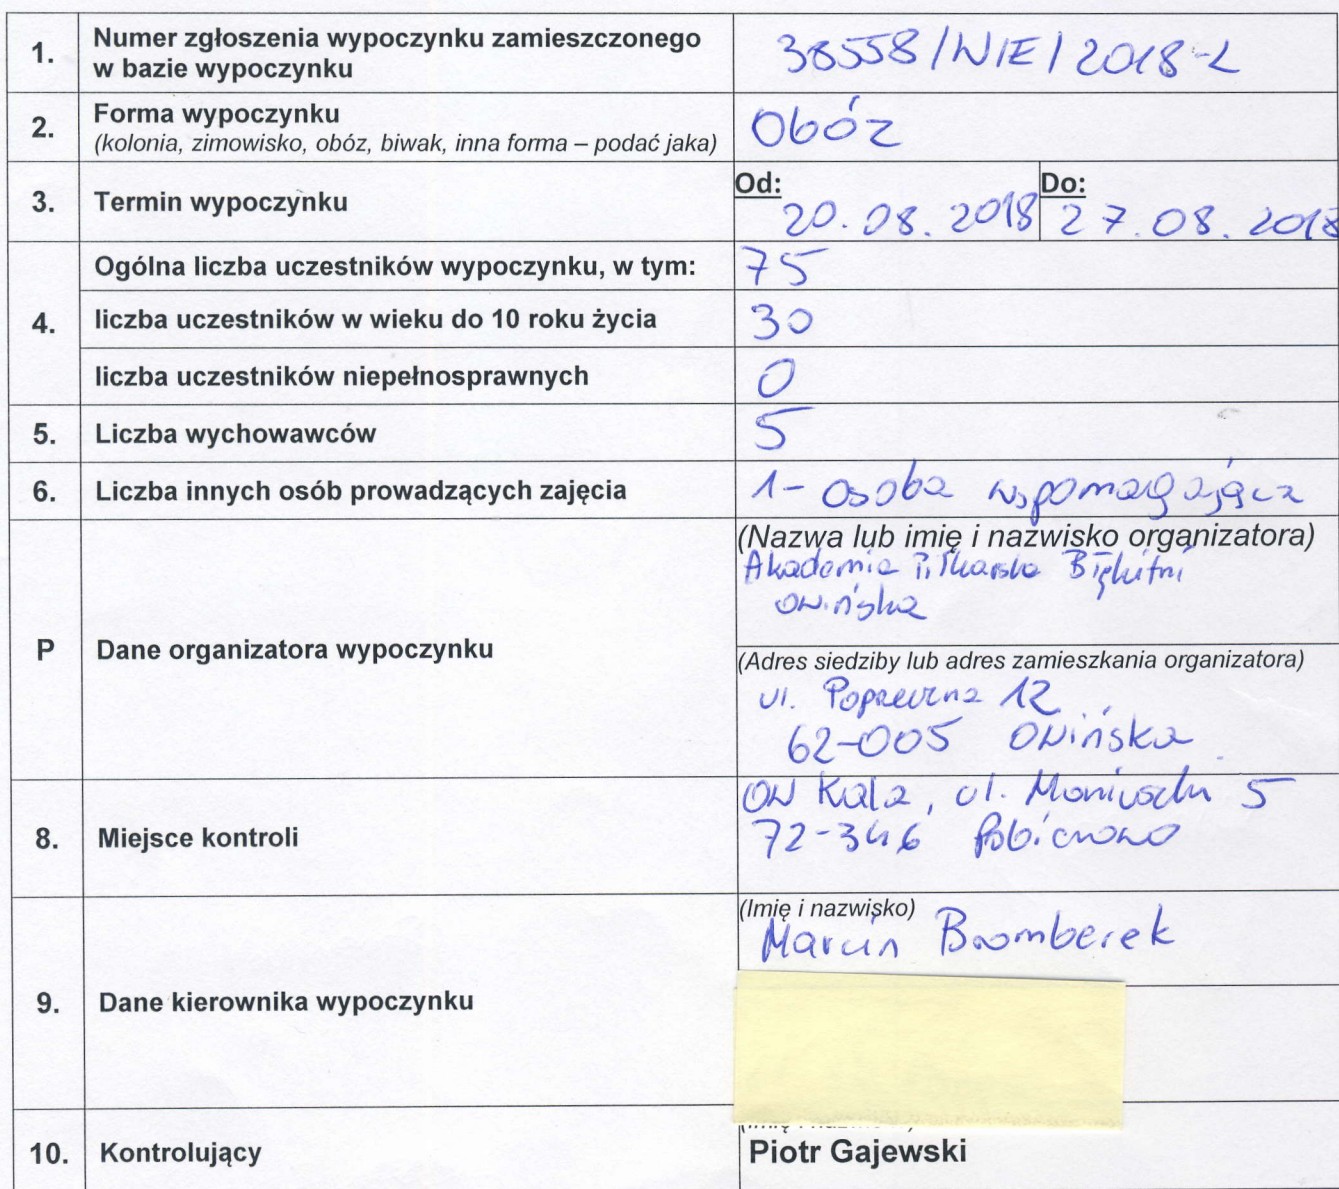 1. Numer zgłoszenia wypoczynku zamieszczonego
w bazie wypoczynku
38558/WIE/2018-L
2. Forma wypoczynku
(kolonia, zimowisko, obóz, biwak, inna forma – podać jaka)
Obóz
3. Termin wypoczynku
Od: 20.08.2018
Do: 27.08.2018
4.
Ogólna liczba uczestników wypoczynku, w tym: 75
liczba uczestników w wieku do 10 roku życia 30
liczba uczestników niepełnosprawnych 0
5. Liczba wychowawców 5
6. Liczba innych osób prowadzących zajęcia 1- osoba wspomagająca
P Dane organizatora wypoczynku
(Nazwa lub imię i nazwisko organizatora)
Akademia Piłkarska Błękitni
Owińska
(Adres siedziby lub adres zamieszkania organizatora)
ul. Poprzeczna 12
62-005 Owińska
8. Miejsce kontroli
OW Kala, ul. Moniuszki 5
72-346 Pobierowo
9. Dane kierownika wypoczynku
(Imię i nazwisko)
Marcin Bromberek
10. Kontrolujący
Piotr Gajewski